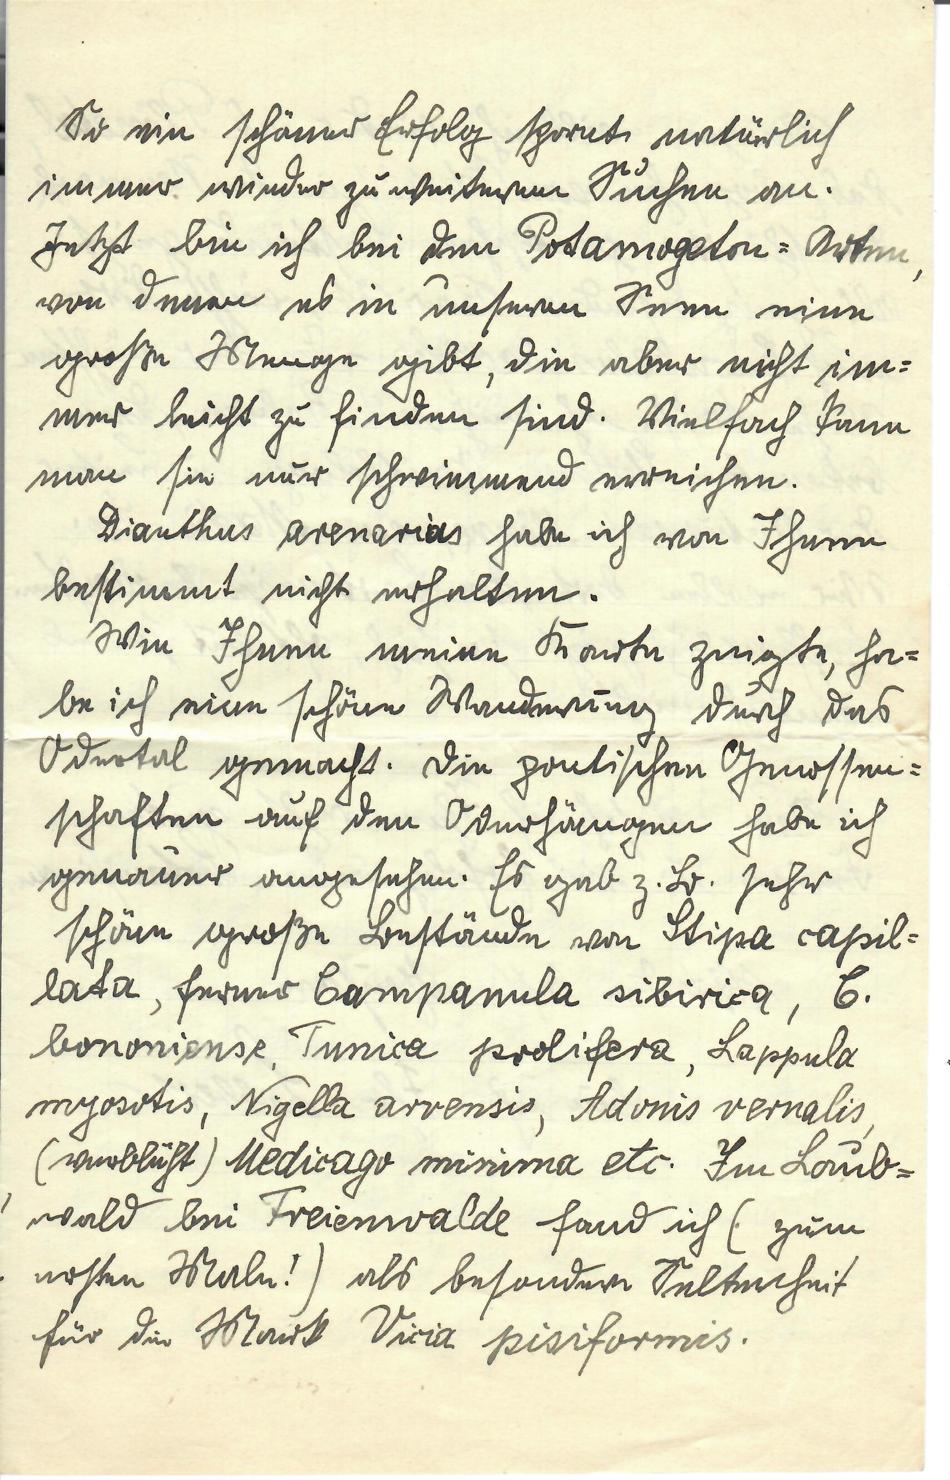 So ein schöner Erfolg spornt natürlich
immer wieder zu weiterem Suchen an.
Jetzt bin ich bei den Potamogeton= Arten,
von denen es in unseren Seen eine
große Menge gibt, die aber nicht im=
mer leicht zu finden sind. Vielfach kann
man sie nur schwimmend erreichen.
Dianthus arenarius habe ich von Ihnen
bestimmt nicht erhalten.
Wie Ihnen meine Karte zeigte, ha=
be ich eine schöne Wanderung durch das
Odertal gemacht. Die pontischen Genossen=
schaften auf den Oderhängen habe ich
genauer angesehen. Es gab z.B. sehr
schöne große Bestände von Stipa capil=
lata, ferner Campanula sibirica, C.
bononiense, Tunica prolifera, Lappula
myosotis, Nigella arvensis, Adonis vernalis,
(verblüht) Medicago minima etc. Im Laub=
wald bei Freienwalde fand ich (zum
ersten Male!) als besondere Seltenheit
für die Mark Vicia pisiformis.